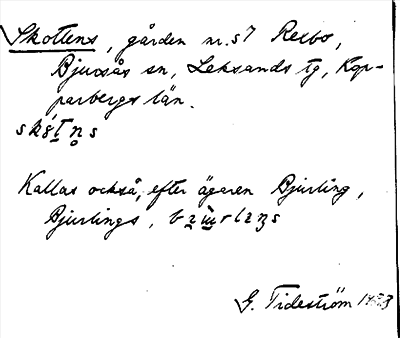 Skottens, gården nr.57 Rexbo,
Bjursås sn, Leksands tg, Kop-
parbergs län.
Kallas också, efter ägaren Bjurling,
Bjurlings,
G. Tideström